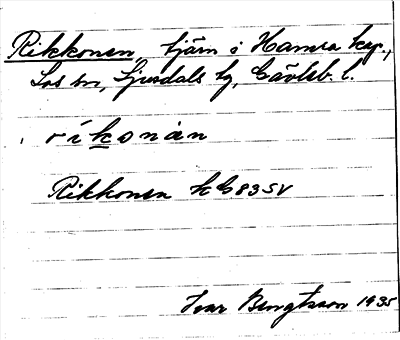 Rikkonen, tjärn i Hamra kap.,
Los sn, Ljusdals tg, Gävleb. l.
rikonan
Rikkonen k G83SV
Ivar Bengtsson 1935